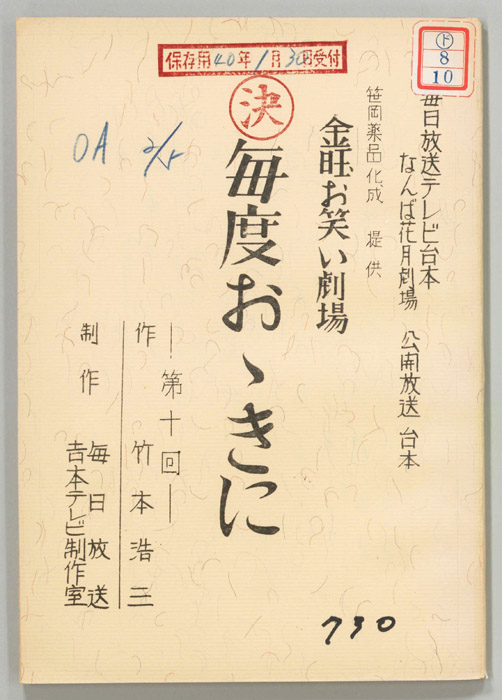 保存用40年1月30日受付
㋣
8
10
決
OA 2/5
毎日放送テレビ台本
なんば花月劇場 公開放送 台本
笹岡薬品化成 提供
金旺お笑い劇場
毎度おゝきに
―第十回―
作 竹本浩三
制作 毎日放送
吉本テレビ制作室
730